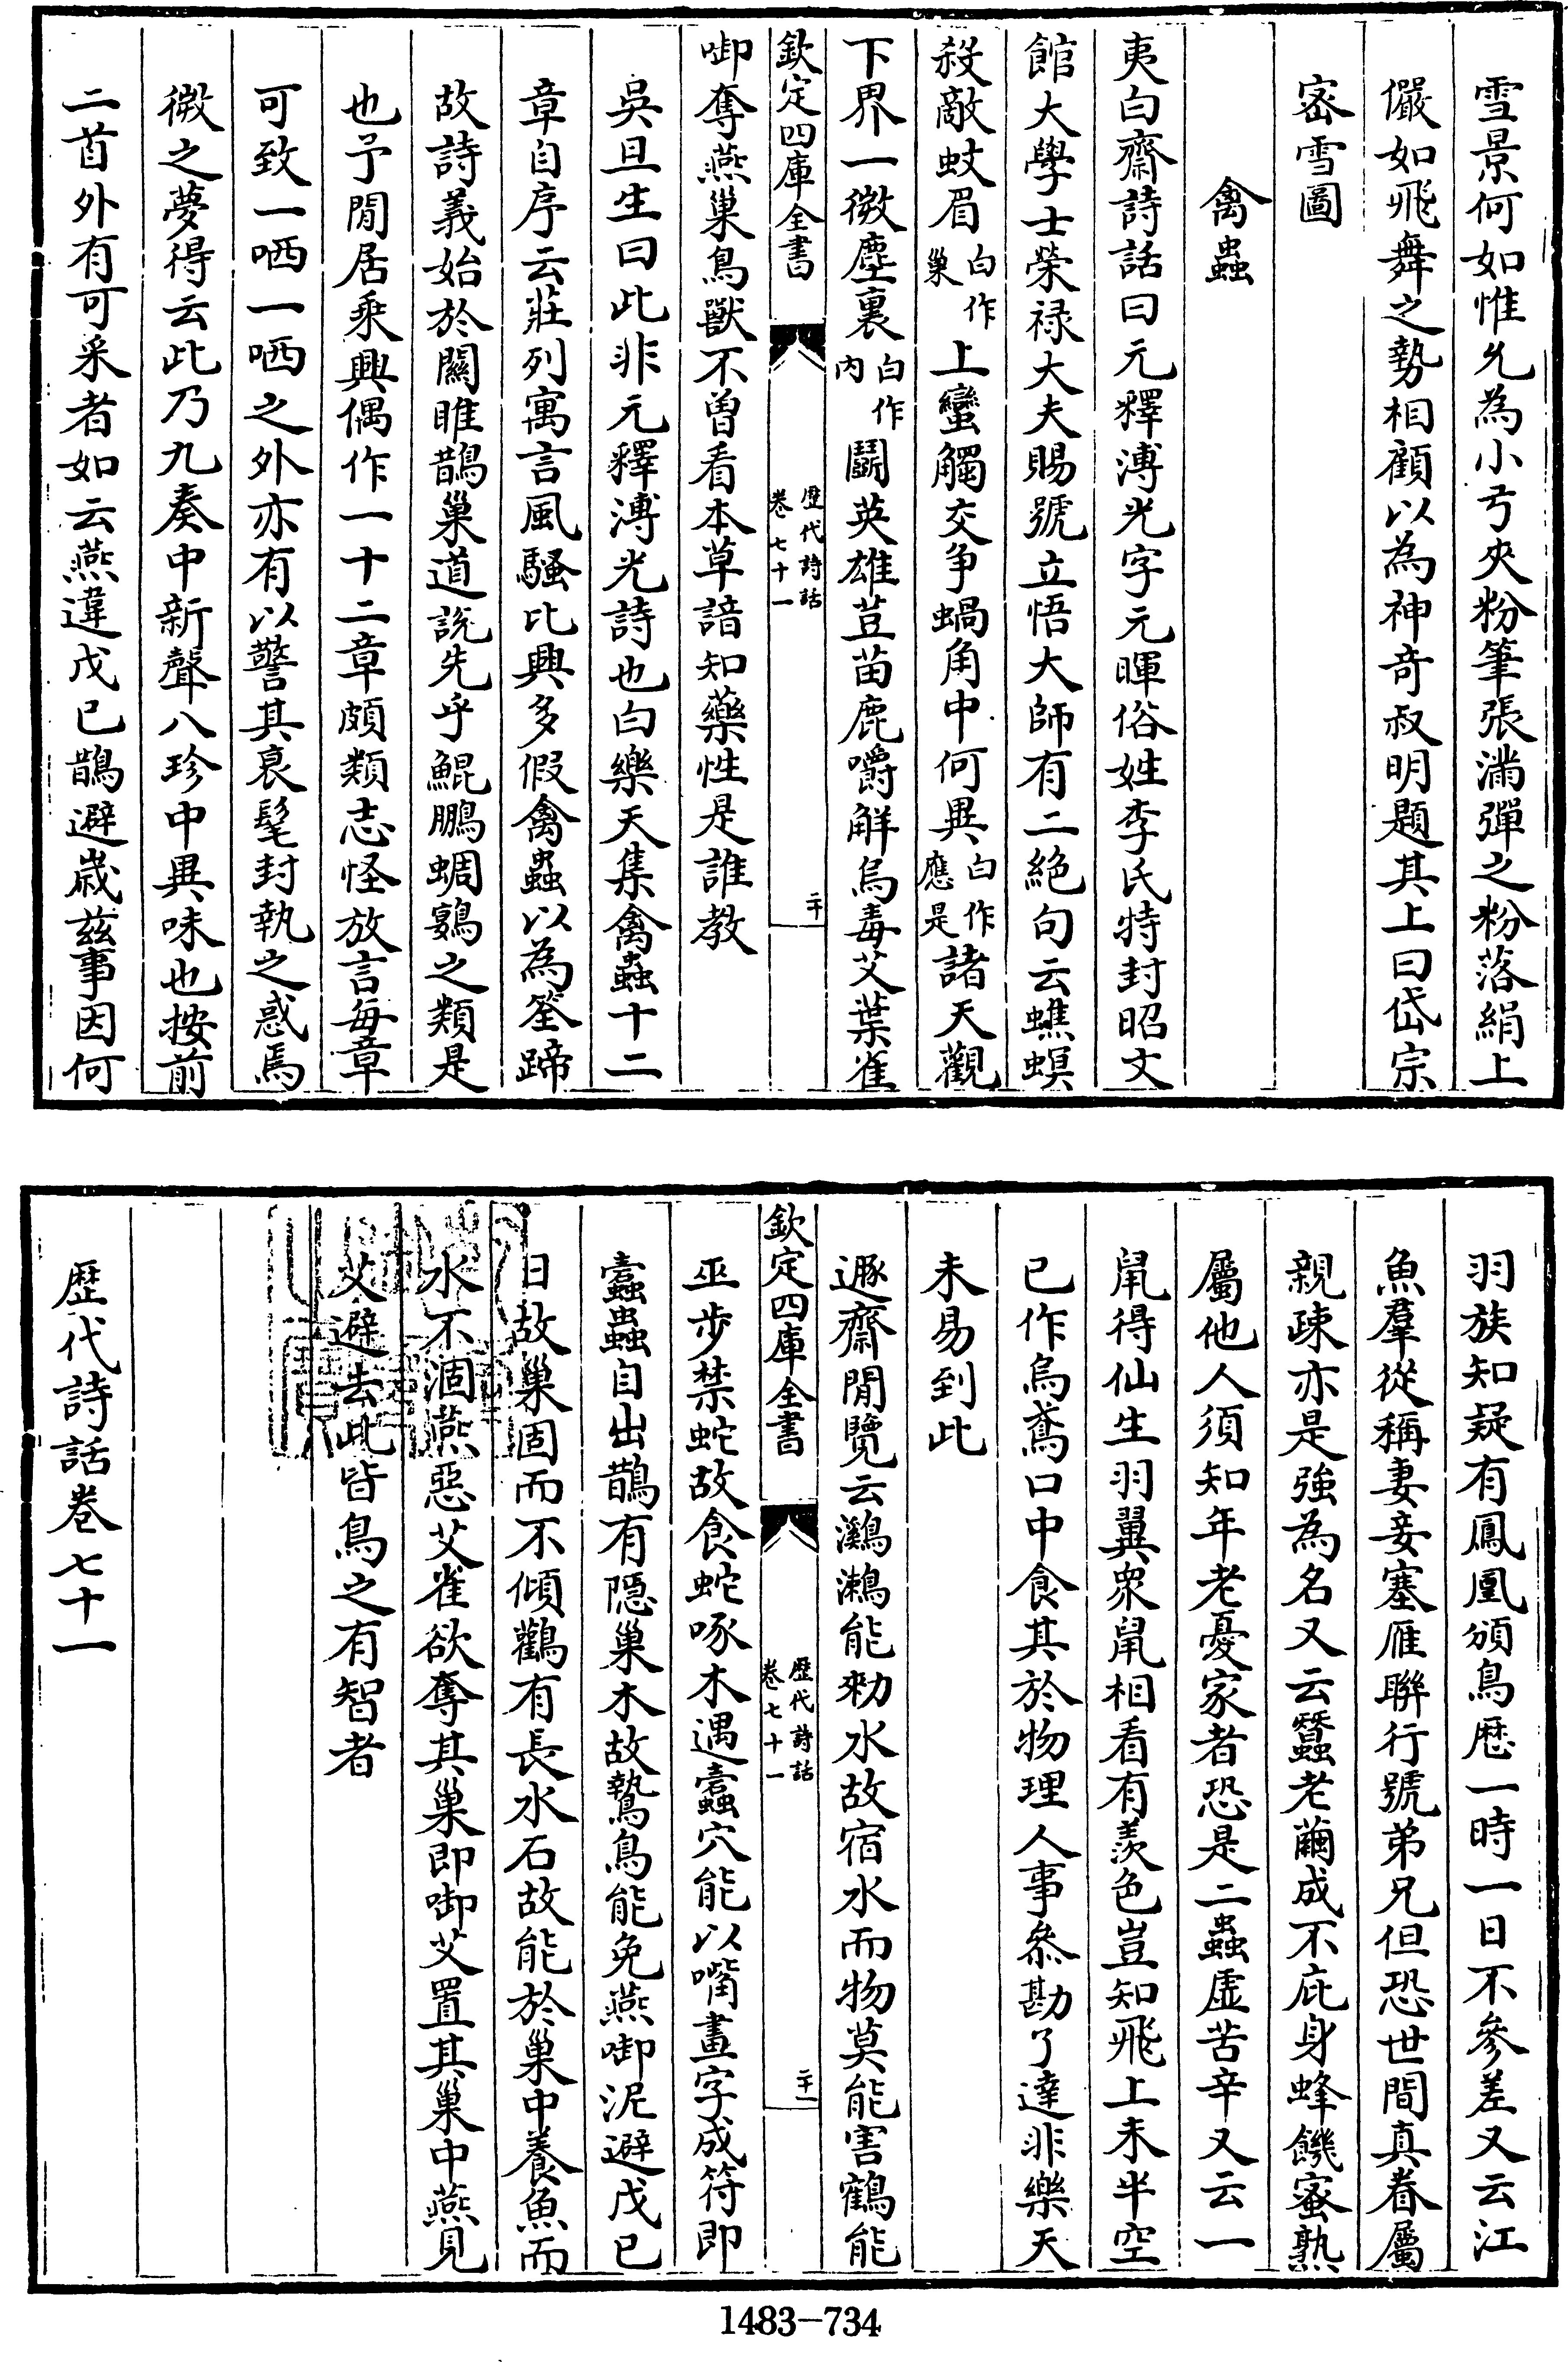 雪景何如惟允為小弓夾粉筆張滿彈之粉落絹上
儼如飛舞之勢相顧以為神奇叔明題其上曰岱宗
密雪圖
禽蟲
夷白齋詩話曰元釋溥光字元暉俗姓李氏特封昭文
館大學士榮祿大夫賜號立悟大師有二絶句云蟭螟
殺敵蚊眉白作巢上蠻觸交爭蝸角中何異白作應是諸天觀
下界一微塵裏白作内鬭英雄荳苗鹿嚼解烏毒艾葉雀
欽定四庫全書 歴代詩話卷七十一 二十
啣奪燕巢鳥獸不曾看本草諳知藥性是誰教
吳旦生曰此非元釋溥光詩也白樂天集禽蟲十二
章自序云莊列寓言風騷比興多假禽蟲以為筌蹄
故詩義始於關雎鵲巢道說先乎鯤鵬蜩鷃之類是
也予閒居乘興偶作一十二章頗類志怪放言每章
可致一哂一哂之外亦有以警其衰髦封執之惑焉
微之夢得云此乃九奏中新聲八珍中異味也按前
二首外有可采者如云燕違戊巳鵲避歲兹事因何
羽族知疑有鳳凰頒鳥厯一時一日不參差又云江
魚羣從稱妻妾塞雁聯行號弟兄但恐世間真眷屬
親疎亦是強為名又云蠶老繭成不庇身蜂饑蜜熟
屬他人須知年老憂家者恐是二蟲虛苦辛又云一
鼠得仙生羽翼衆鼠相看有羨色豈知飛上未半空
已作烏鳶口中食其於物理人事叅勘了達非樂天
未易到此
遯齋閒覽云鸂鶒能勑水故宿水而物莫能害鶴能
欽定四庫全書 歴代詩話卷七十一 二十一
巫步禁蛇故食蛇啄木遇蠹穴能以嘴畫字成符即
蠹蟲自出鵲有隱巢木故鷙鳥能免燕啣泥避戊巳
日故巢固而不傾鸛有長水石故能於巢中養魚而
水不涸燕惡艾雀欲奪其巢即啣艾置其巢中燕見
艾避去此皆鳥之有智者
歴代詩話卷七十一
1483-734